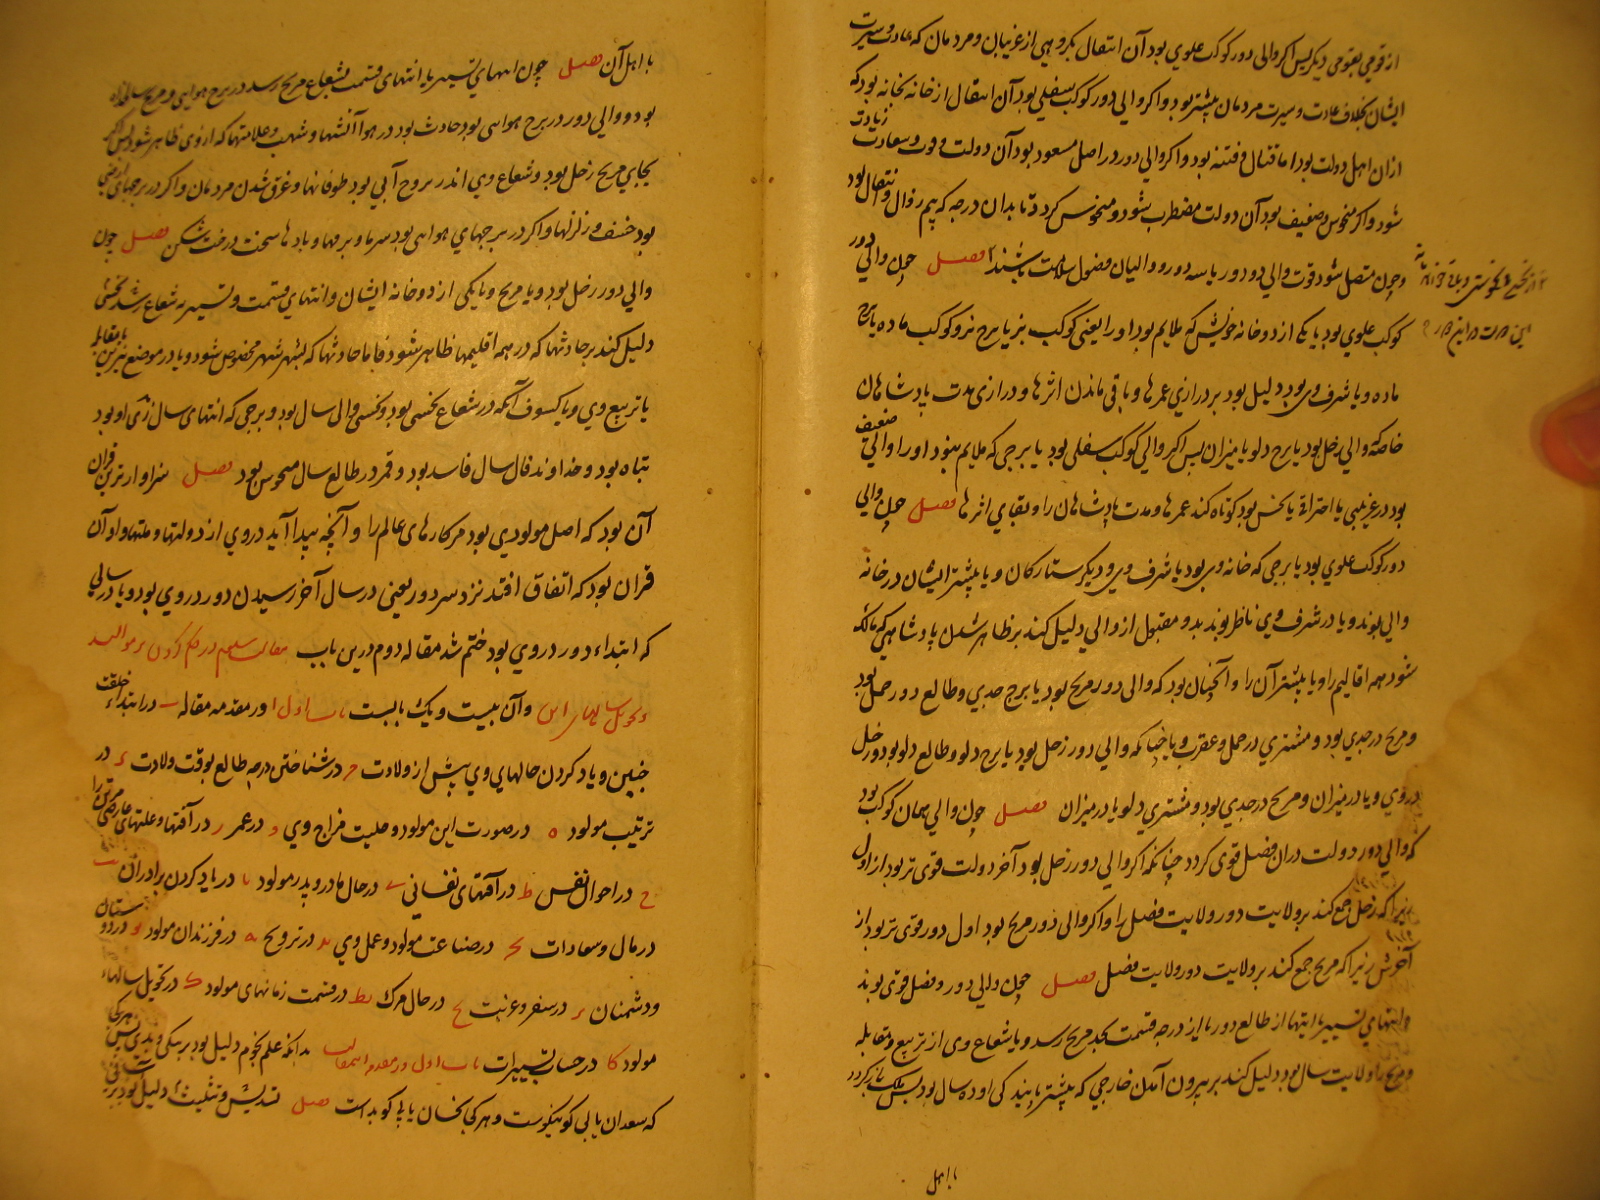 از قومی بقومی دیگر پس اگر والی دور کوکب علوی بود آن انتقال بگروهی از غریبان و مردمان که عادت و سیرت
ایشان بخلاف عادت و سیرت مردمان پیشتر بود و اگر والی دور کوکب سفلی بود آن انتقال از خانه بخانه بود که
از ان اهل دولت بود اما قتال و فتنه بود و اگر والی دور در اصل مسعود بود آن دولت و قوت و سعادت زیادت
شود و اگر منحوس و ضعیف بود آن دولت مضطرب شود و منحوس گردد تا بدان درجه که بیم زوال و انتقال بود
و چون متصل شود قوت والی دور باسه دور و والیان فصول سلامت باشند فصل چون والی دور
کوکب علوی بود یا یکی از دو خانه خویش که ملایم بود او را یعنی کوکب نر یا برج نر و کوکب ماده یا برج
ماده و یا شرف وی بود دلیل بود بر درازی عمرها و باقی ماندن اثرها و درازی مدت پادشاهان
خاصه که والی زحل بود یا برج دلو یا میزان پس اگر والی کوکب سفلی بود یا برجی که ملایم نبود او را و والی ضعیف
بود در غریبی یا احتراقی یا نحس بود کوتاه کند عمرها و مدت پادشاهان را و بقای اثرها فصل چون والی
دور کوکب علوی بود یا برجی که خانه وی بود یا شرف وی و دیگر ستارگان و یا بیشتر ایشان در خانه
والی بوند و یا در شرف وی ناظر بوند بدو مقبول از والی دلیل کند بر ظاهر شدن پادشاهی که مالک
شود همه اقالیم را و یا بیشتر آن را و آنچنان بود که والی دور مریخ بود یا برج جدی و طالع دور حمل بود
و مریخ در جدی بود و مشتری در حمل و عقرب و یا چنانکه والی دور زحل بود یا برج دلو و طالع دلو بود و زحل
در وی و یا در میزان و مریخ در جدی بود و مشتری در دلو یا در میزان فصل چون والی همان کوکب بود
که والی دور دولت در ان فصل قوی گردد چنانکه اگر والی دور زحل بود آخر دولت قوی تر بود از اول
زیرا که زحل جمع کند بر ولایت دور ولایت فصل را و اگر والی دور مریخ بود اول دور قوی تر بود از
آخرش زیرا که مریخ جمع کند بر ولایت دور ولایت فصل فصل چون والی دور و فصل قوی بوند
و انتهای تسییر یا انتها از طالع دور یا از درجه قسمت بجد مریخ رسد و یا شعاع وی از تربیع و مقابله
و مریخ را ولایت سال بود دلیل کند بر بیرون آمدن خارجی که بیشتر پایندگی او ده سال بود پس ملک باز گردد
با اهل
با اهل آن فصل چون انتهای تسییر یا انتهای قسمت بشعاع مریخ رسد در برج هوایی و مریخ
بود و والی دور در برج هوایی بود حادث بود در هوا آتشها و شهب و علامتها که از وی ظاهر شود پس اگر
بجای مریخ زحل بود و شعاع وی اندر بروج آبی بود طوفانها و غرق شدن مردمان و اگر در برجهای ارضی
بود خسف و زلزلها و اگر در برجهای هوایی بود سرما و برفها و بادها سخت درخت شکن فصل چون
والی دور زحل بود و یا مریخ و یا یکی از دو خانه ایشان و انتهای قسمت و تسییر به شعاع رسد نحسی
دلیل کند بر حادثها که در همه اقلیمها ظاهر شود فاما حادثها که بشهر شهر مخصوص شود و یا در موضع نیرین یا مقابله
یا تربیع وی و یا کسوف آنکه در شعاع نحسی بود و نحسی والی سال بود و برجی که انتهای سال زدی او بود
تباه بود و خداوند فال سال فاسد بود و قمر در طالع سال منحوس بود فصل سزاوارترین قران
آن بود که اصل مولودی بود مر کارهای عالم را و آنچه پیدا آید در وی از دولتها و ملتها و او آن
قران بود که اتفاق افتد نزد سر دور یعنی در سال آخر رسیدن دور در وی بود و یا در سالی
که ابتداء دور در وی بود ختم شد مقاله دوم درین باب مقالت سیم در حکم کردن بر موالید
و تحویل سالهاء ایشان و آن بیست و یک بابست باب اول اور مقدمه مقاله ب در ابتداء خلقت
جنین و یاد کردن حالهای وی پیش از ولادت ج در شناختن درجه طالع بوقت ولادت د در
ترتیب مولود ه در صورت این مولود و صلیت مزاج وی و در عمر ز در آفتها و علتهای عارضی مر تن را
ح در احوال نفس ط در آفتهای نفسانی ی در حال مادر و پدر مولود یا در یاد کردن برادران یب
در مال و سعادات یج در صناعت مولود و عمل وی ید در ترویج یه در فرزندان مولود یو در دوستان
و دشمنان یز در سفر و غربت یح در حال مرگ یط در قسمت زمانهای مولود ک در تحویل سالهاء
مولود کا در حساب تسییرات باب اول در مقدمه این مقالت بدانکه علم نجوم دلیل بود بر نیکی و بدی پس هر کی
که سعدان یا بی کو نیکوست و هر کی نحسان یا بی کو بد است فصل تسدیس و تثلیث دلیل بود بر